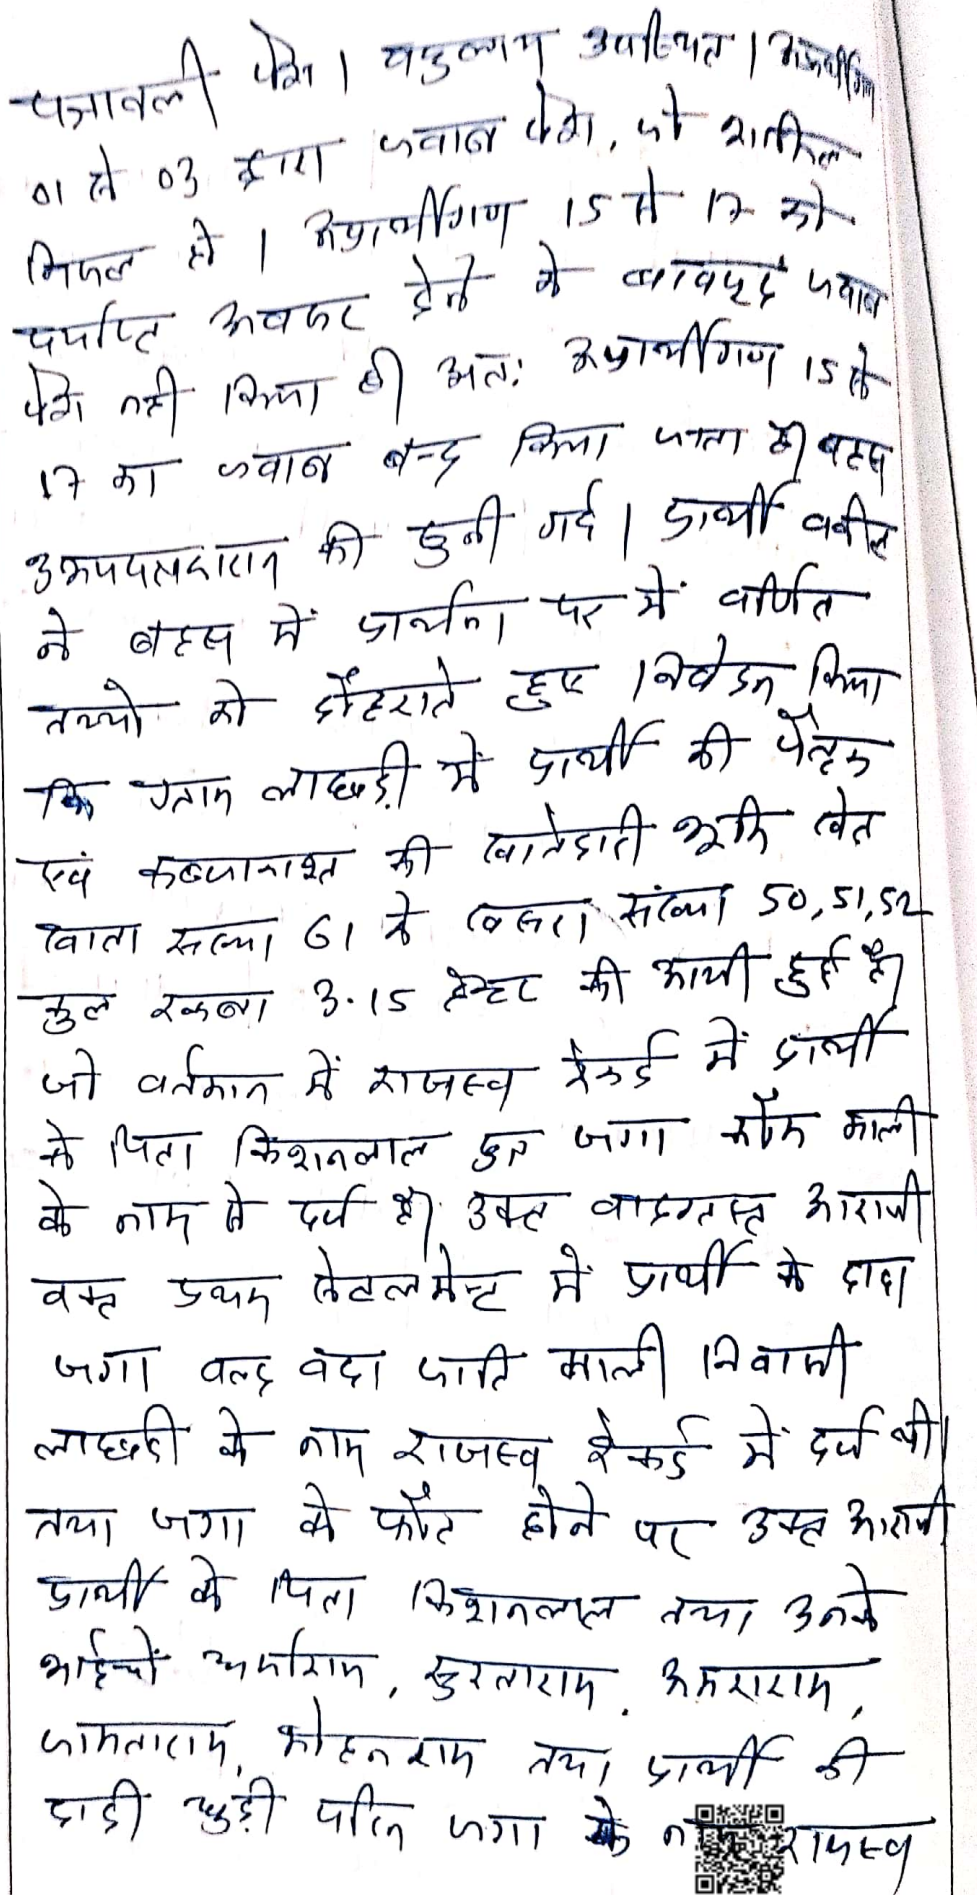 पत्रावली पेश। वकुलाय उपस्थित। अप्रार्थीगण
01 से 03 द्वारा जवाब पेश, जो शामिल
मिसल हो। अप्रार्थीगण 15 से 17 को
पर्याप्त अवसर देने के बावजूद जवाब
पेश नही किया है। अतः अप्रार्थीगण 15 से
17 का जवाब बन्द किया जाता है। बहस
उभयपक्षकारान की सुनी गई। प्रार्थी वकील
ने बहस में प्रार्थना पत्र में वर्णित
तथ्यो को दौहराते हुए निवेदन किया
कि ग्राम लाछड़ी में प्रार्थी की पैतृक
एवं कब्जाकाश्त की खातेदारी भूमि खेत
खाता संख्या 61 के खसरा संख्या 50, 51, 52
कुल रकबा 3.15 हेक्टर की आयी हुई है।
जो वर्तमान में राजस्व रेकर्ड में प्रार्थी
के पिता किशनलाल पुत्र जगा कौम माली
के नाम से दर्ज है। उक्त वादग्रस्त आराजी
वक्त प्रथम सेटलमेन्ट में प्रार्थी के दादा
जगा वल्द वदा जाति माली निवासी
लाछड़ी के नाम राजस्व रेकर्ड में दर्ज थी।
तथा जगा के फौत होने पर उक्त आराजी
प्रार्थी के पिता किशनलाल तथा उनके
भाईयों, सुरताराम, अमराराम,
जामताराम, मोहनराम तथा प्रार्थी की
दादी पत्नि जगा के राजस्व